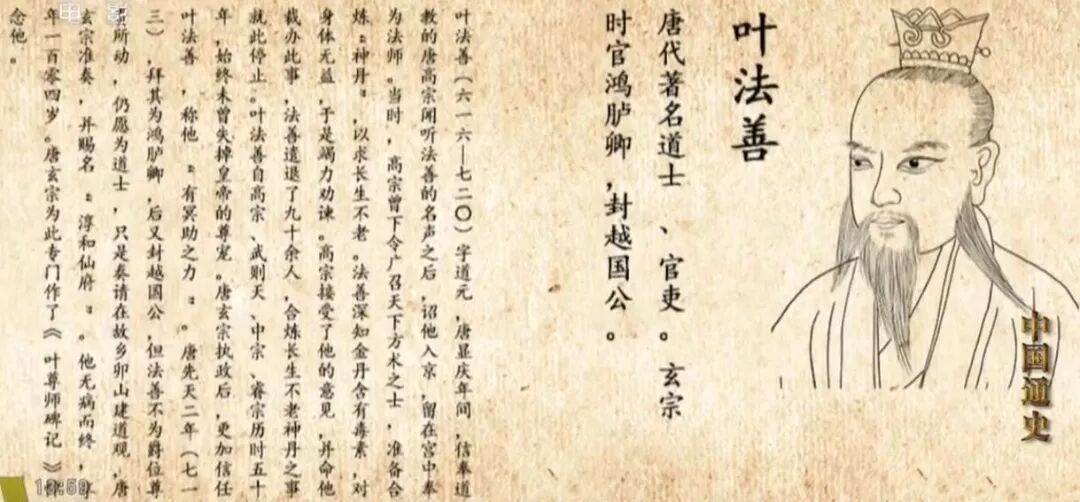 中国通史
叶法善
唐代著名道士、官吏。玄宗
时官鸿胪卿，封越国公。
叶法善（六一六—七二〇）字道元，唐显庆年间，信奉道
教的唐高宗闻听法善的名声之后，诏他入京，留在宫中奉
为法师。当时，高宗曾下令广召天下方术之士，准备合
炼“神丹”，以求长生不老。法善深知金丹含有毒素，对
身体无益，于是竭力劝谏。高宗接受了他的意见，并命他
裁办此事，法善遣退了九十余人，合炼长生不老神丹之事
就此停止。叶法善自高宗、武则天、中宗、睿宗历时五十
年，始终未曾失掉皇帝的尊宠。唐玄宗执政后，更加信任
叶法善，称他“有冥助之力”。唐先天二年（七一
三），拜其为鸿胪卿，后又封越国公，但法善不为爵位尊
所动，仍愿为道士，只是奏请在故乡卯山建道观，唐
玄宗准奏，并赐名“淳和仙府”。他无病而终，享
年一百零四岁。唐玄宗为此专门作了《叶尊师碑记》
念他。
电影